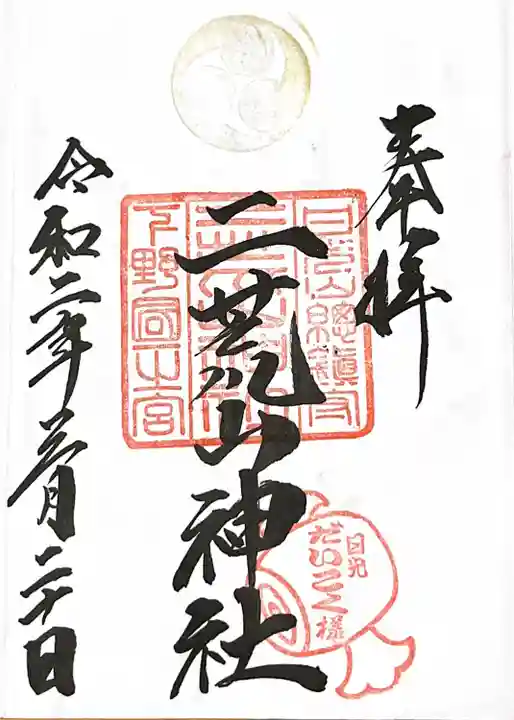 奉拝
日光山總鎮守
二荒山神社
下野國一之宮
令和二年三月二十日
日光
だいこく様